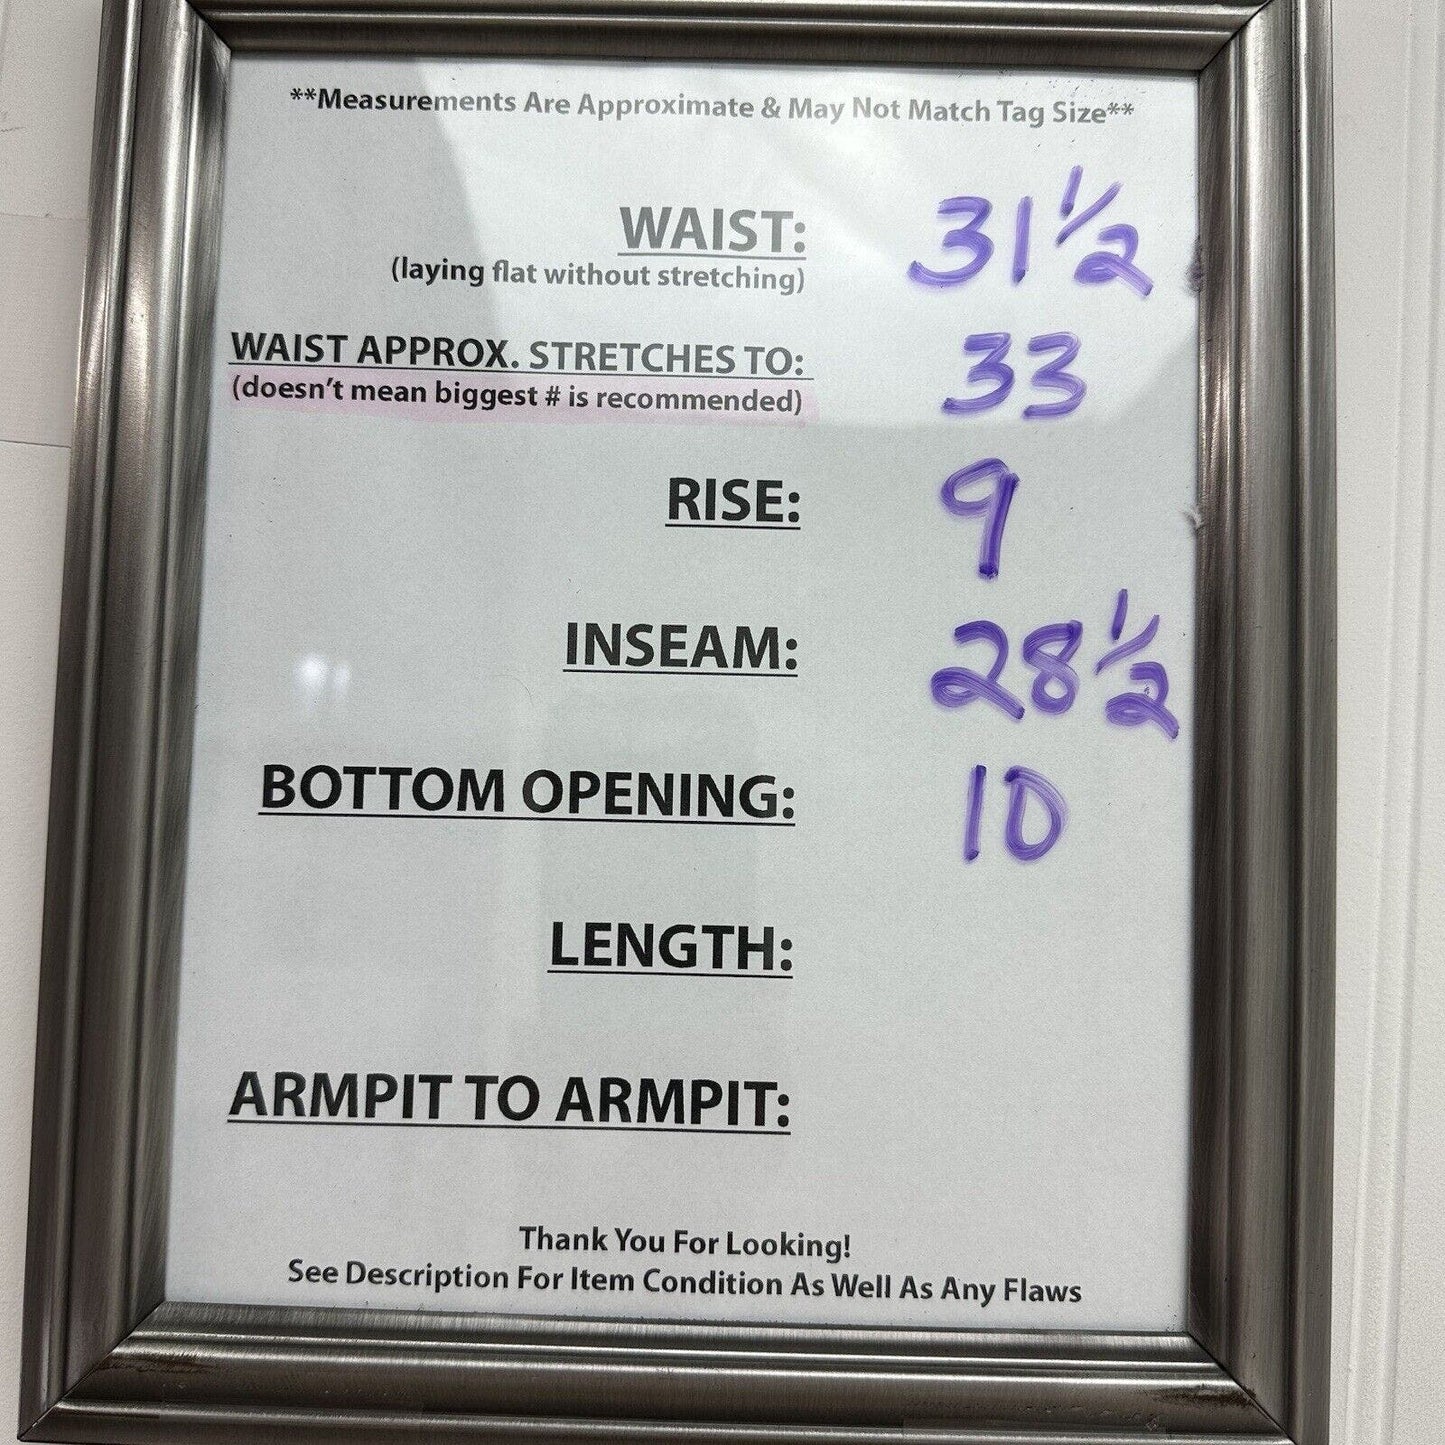 **Measurements Are Approximate & May Not Match Tag Size**
WAIST: 31 1/2
(laying flat without stretching)
WAIST APPROX. STRETCHES TO: 33
(doesn't mean biggest # is recommended)
RISE: 9
INSEAM: 28 1/2
BOTTOM OPENING: 10
LENGTH:
ARMPIT TO ARMPIT:
Thank You For Looking!
See Description For Item Condition As Well As Any Flaws